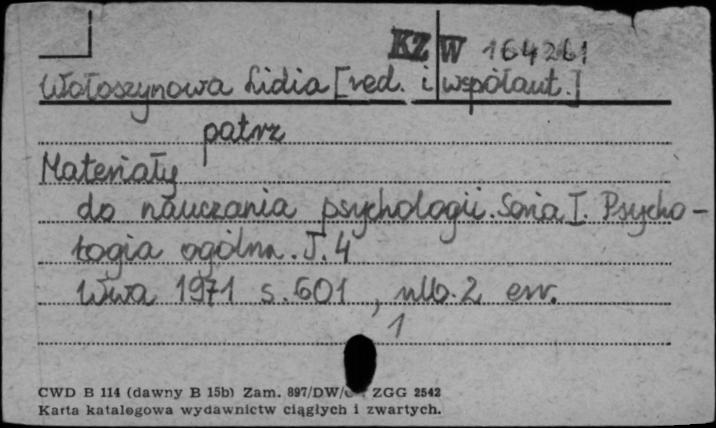 KZ W 164261
Wołoszynowa Lidia [red. i współaut.]
patrz
Materiały
do nauczania psychologii. Seria I. Psycho-
logia ogólna. T. 4
Wwa 1971 s. 601, nlb. 2 err.
1
CWD B 114 (dawny B 15b) Zam. 897/DW/ ZGG 2542
Karta katalogowa wydawnictw ciągłych i zwartych.